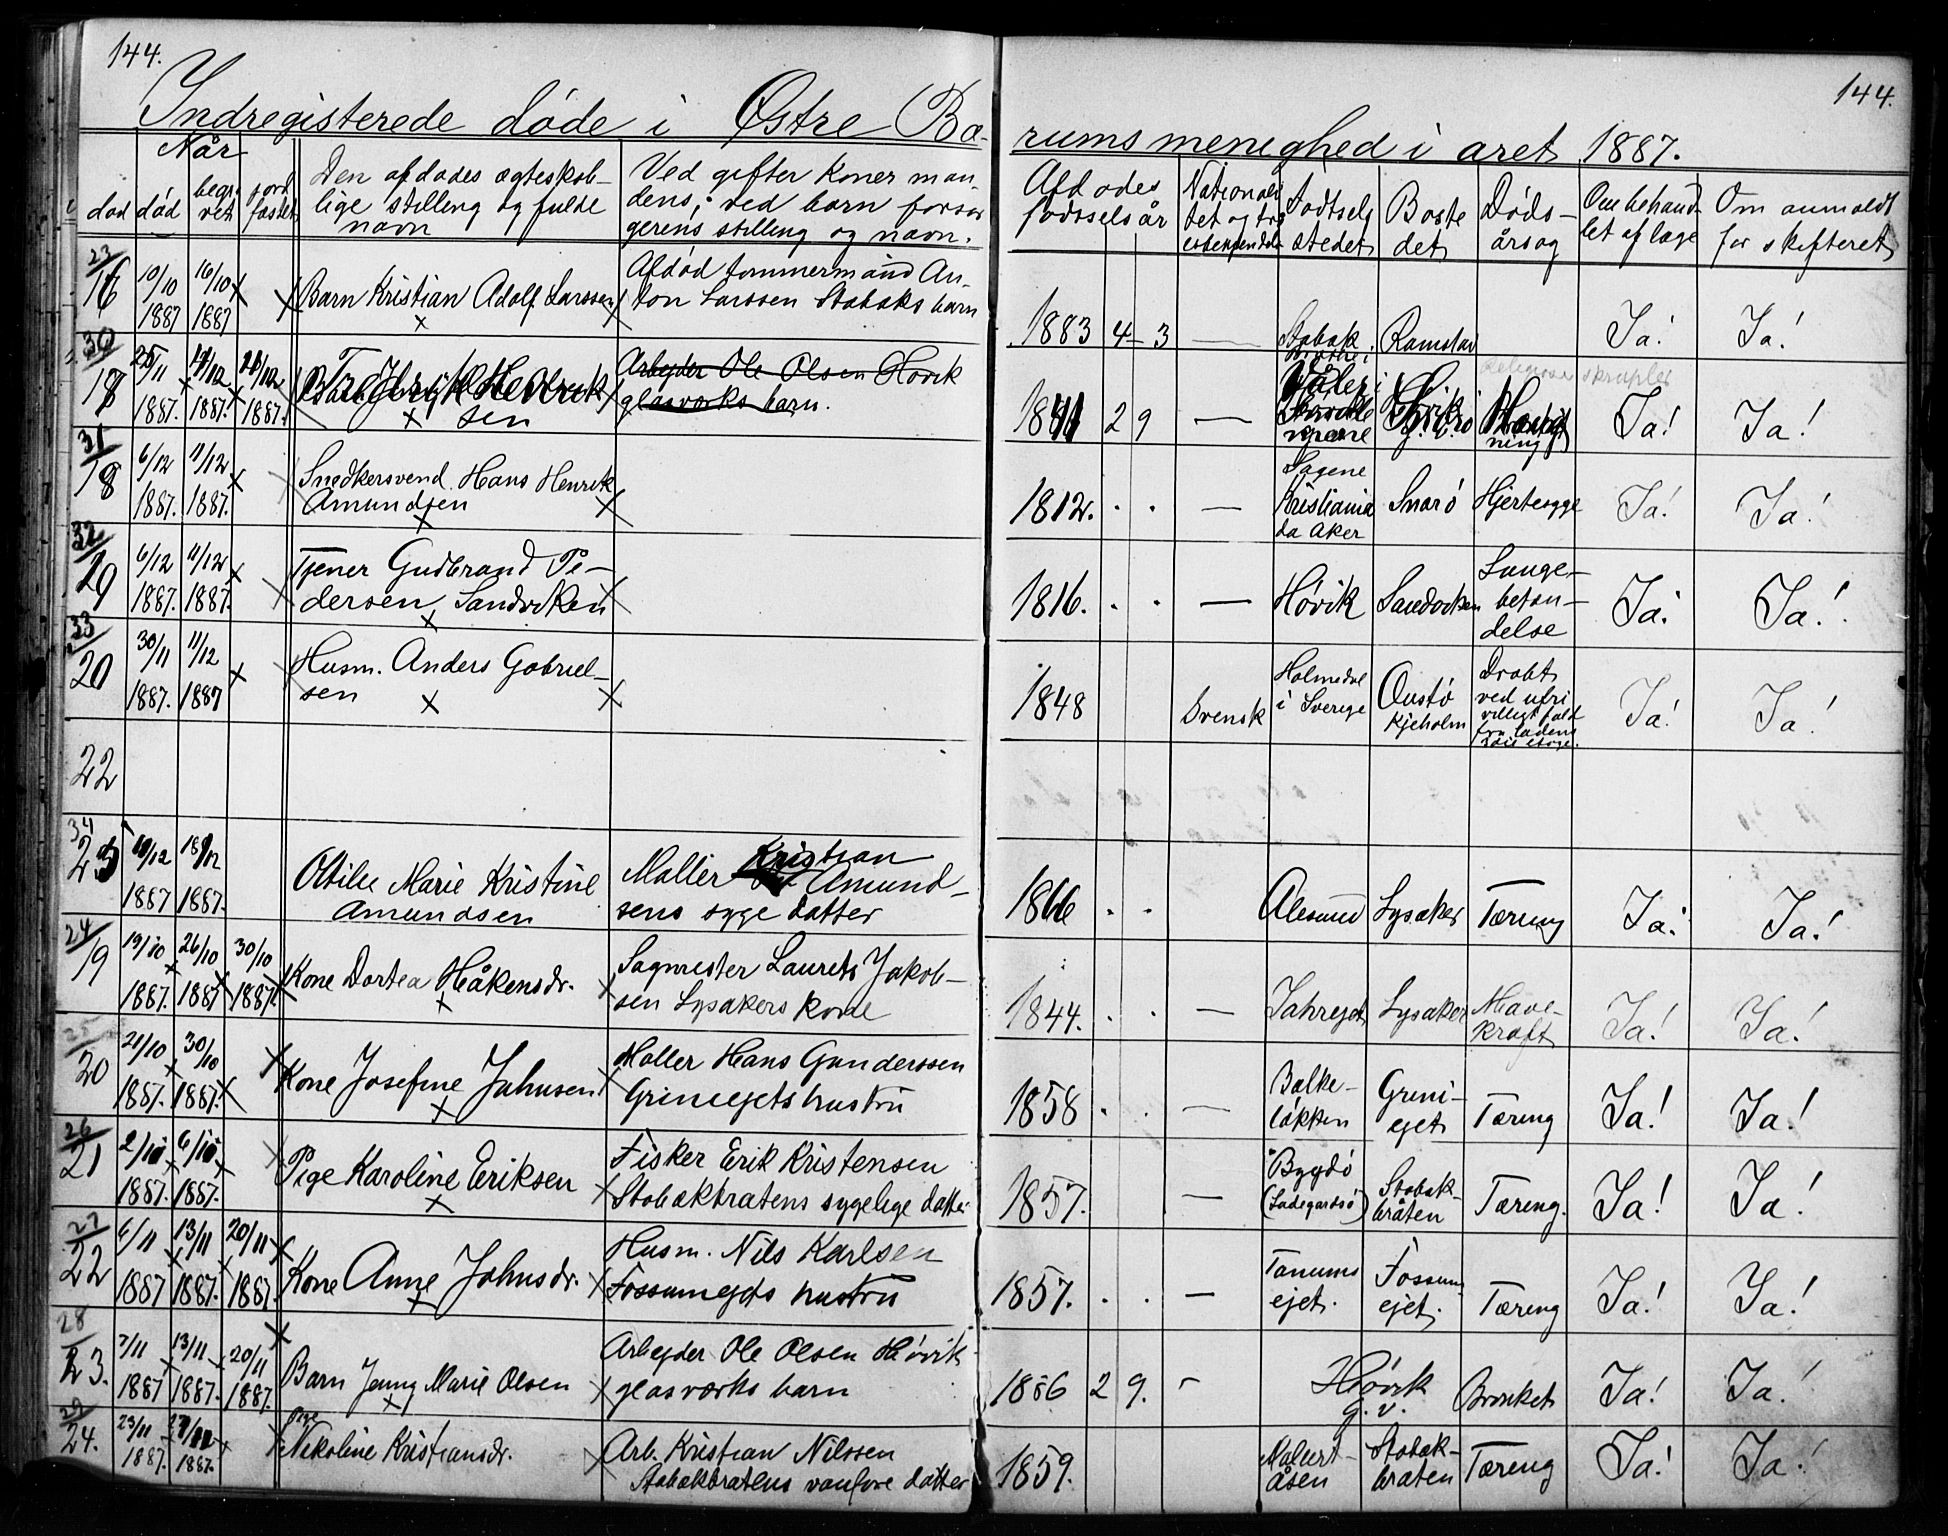 144.
144.
Indregisterede døde i Østre Bæ-
rums menighed i året 1887.
Når
død
begra
vet
jord
fæstet
Den afdødes ægteskab-
lige stilling og fulde
navn
Ved gifter koner man-
dens, ved barn forsør
gerens stilling og navn.
Afdødes
fødselsår
Nationali
tet og tro
Fødsels
stedet
Boste
det
Døds-
årsag
Om behand-
let af læge
Om anmeldt
for skifteret
23
16
10/10
1887
16/10
1887
Barn Kristian Adolf Larssen
Afdød tømmermand An-
ton Larssen Stabæks barn
1883 4 3
Stabæk
Ramstad
Ja!
Ja!
30
18
1887.
1887.
1887.
sen
Arbeyder Ole Olsen Høvik
glasværks barn.
2 9
religiøse skrupler
ning
Ja!
Ja!
31
18
6/12
1887.
11/12
1887.
Snedkersvend Hans Henrik
Amundsen
1812.
Sagene
Kristiania
da Aker
Snarø
Hjertesyge
Ja!
Ja!
32
29
6/12
1887.
11/12
1887.
Tjener Gudbrand Pe-
dersen, Sandviken
1816.
Høvik
Sandviken
Lunge-
betæn-
delse
Ja!
Ja!
33
20
30/11
1887.
11/12
1887
Husm. Anders Gabriel-
sen
1848
Svensk
Holmedal
i Sverige
Oustø
Kjeholm
Dræbt
ved ufri
villigt fald
fra ladens
Ja!
Ja!
22
34
25
1887
1887.
Otilie Marie Kristine
Amundsen
Møller Kristian Amund-
sens syge datter
1866
Ålesund
Lysaker
Tæring
Ja!
Ja!
24
19
19/10
1887.
26/10
1887
30/10
1887.
Kone Dortea Håkensdr.
Sagmester Laurets Jakob-
sen Lysakers kone
1844.
Lysaker
Mave-
kræft
Ja!
Ja!
25
20
21/10
1887.
30/10
1887.
Kone Josefine Johnsen
Møller Hans Gunderssen
Griniejets hustru
1858
Bælke-
løkken
Grini-
ejet
Tæring
Ja!
Ja!
26
21
1887.
1887.
Pige Karoline Eriksen
Fisker Erik Kristensen
Stabækbråtens sygelige datter
1857.
Bygdø
(Ladegårdsø)
Stabæk-
bråten
Tæring.
Ja!
Ja!
27
22
6/11
1887
13/11
1887.
20/11
1887.
Kone Anne Johnsdr.
Husm. Nils Karlsen
Fossumejets hustru
1857.
Tanums
ejet.
Fossum
ejet.
Tæring
Ja!
Ja!
28
23.
7/11
1887
13/11
1887.
20/11
1887.
Barn Jenny Marie Olsen
Arbeyder Ole Olsen Høvik
glasværks barn
1886 2 9.
Høvik
g.v.
Bronket
Ja!
Ja!
29
24.
23/11
1887.
1887.
Pige
Nikoline Kristiansdr.
Arb. Kristian Nilssen
Stabækbråtens vanføre datter
1859.
Stabæk-
bråten
Tæring
Ja!
Ja!